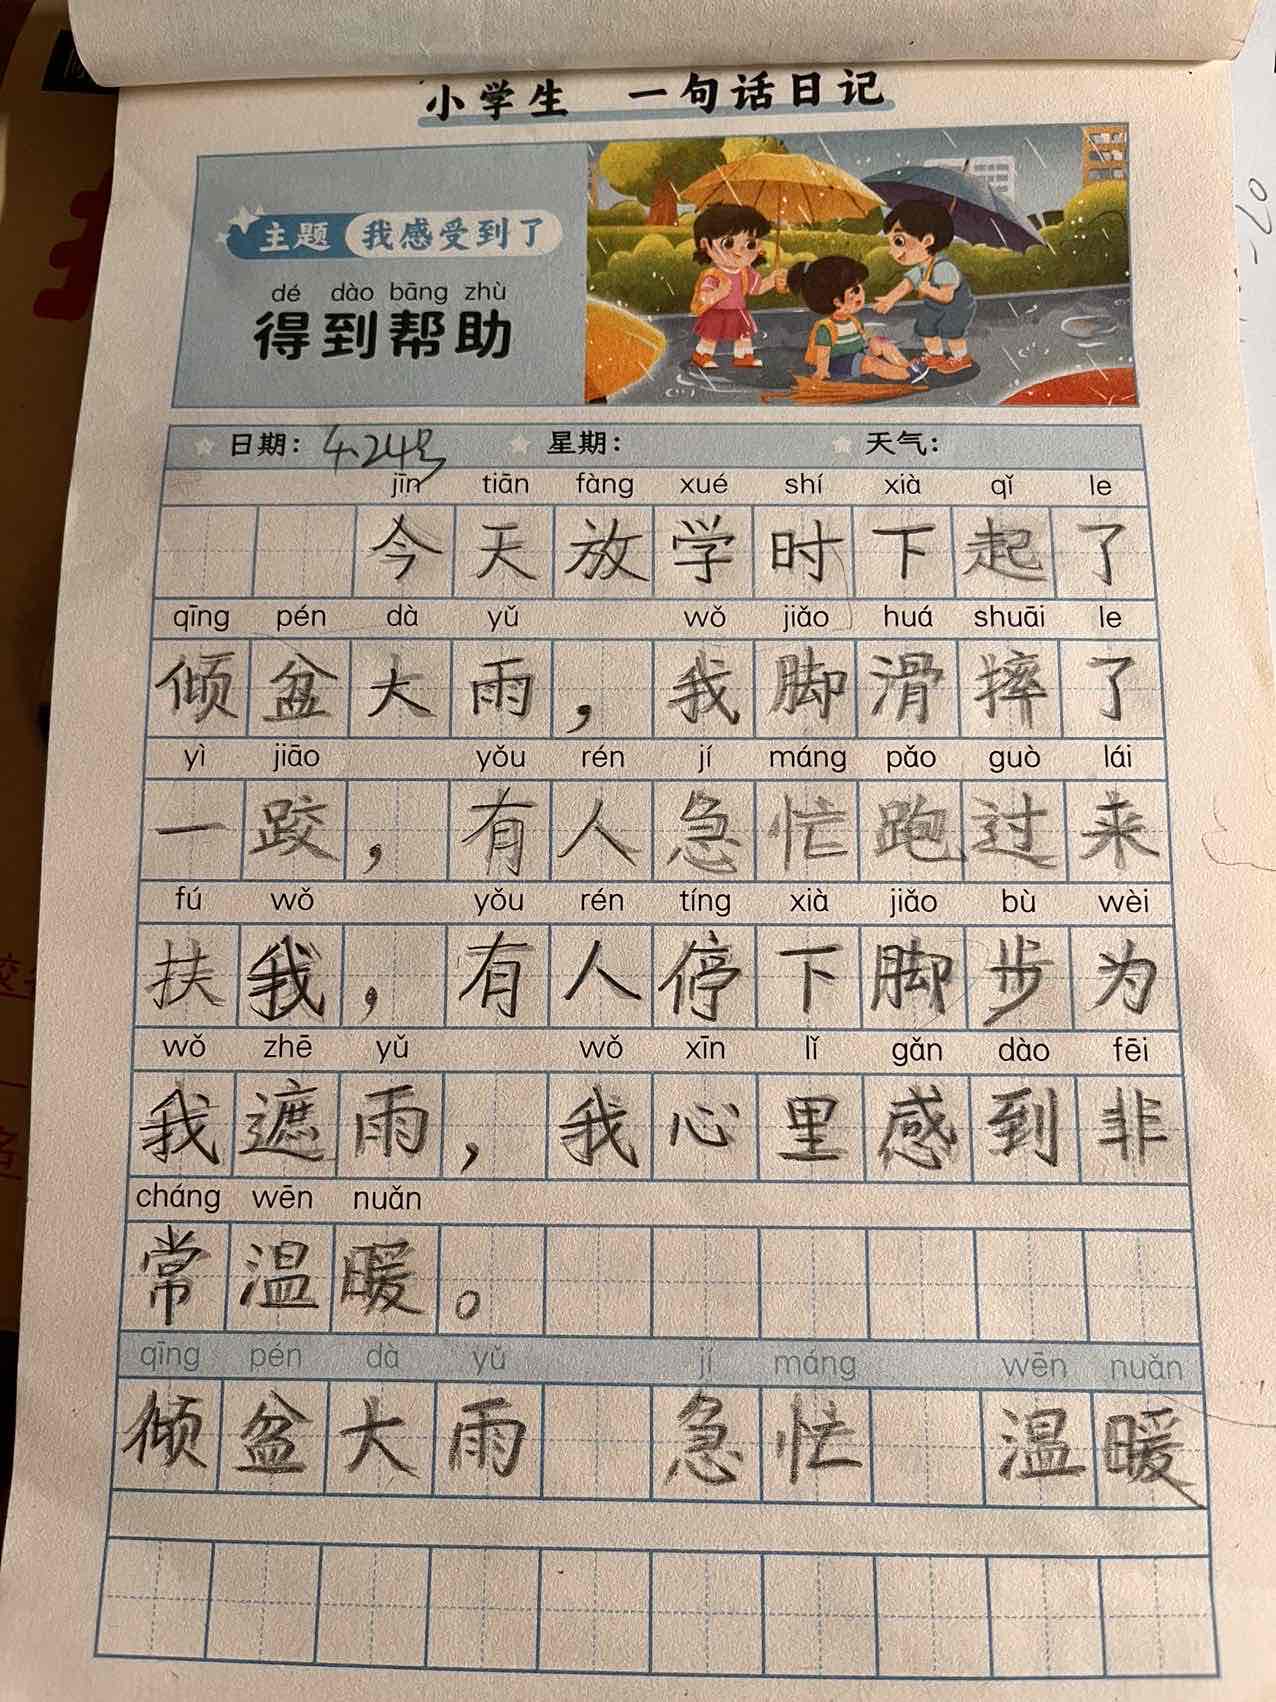 小学生 一句话日记
主题 我感受到了
dé dào bāng zhù
得到帮助
日期：4.24号 星期： 天气：
jīn tiān fàng xué shí xià qǐ le
今天放学时下起了
qīng pén dà yǔ wǒ jiǎo huá shuāi le
倾盆大雨，我脚滑摔了
yì jiāo yǒu rén jí máng pǎo guò lái
一跤，有人急忙跑过来
fú wǒ yǒu rén tíng xià jiǎo bù wèi
扶我，有人停下脚步为
wǒ zhē yǔ wǒ xīn lǐ gǎn dào fēi
我遮雨，我心里感到非
cháng wēn nuǎn
常温暖。
qīng pén dà yǔ jí máng wēn nuǎn
倾盆大雨 急忙 温暖